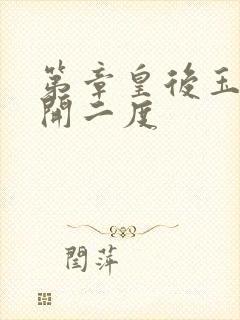 第章皇後玉
開二度
閆萍